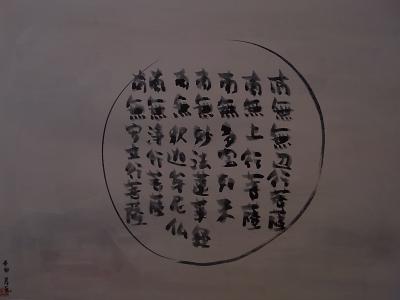 南無無辺行菩薩
南無上行菩薩
南無多宝如来
南無妙法蓮華経
南無釈迦牟尼仏
南無浄行菩薩
南無安立行菩薩